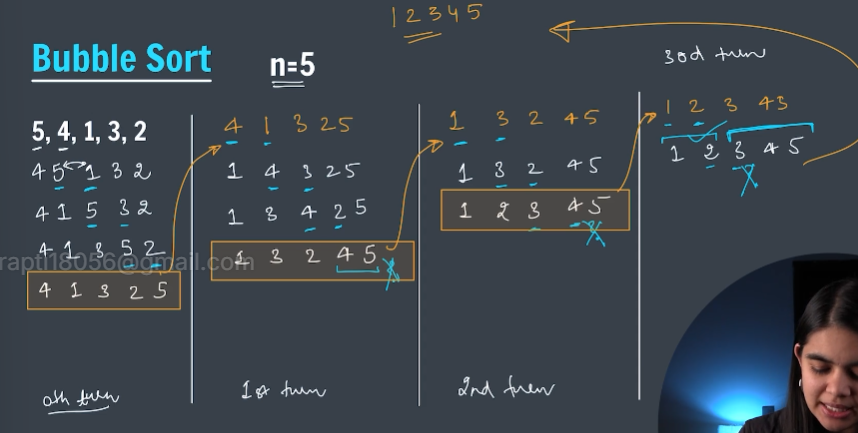 1 2 3 4 5
Bubble Sort
n=5
3rd turn
5, 4, 1, 3, 2
4 5 1 3 2
4 1 5 3 2
4 1 3 5 2
4 1 3 2 5
0th turn
4 1 3 2 5
1 4 3 2 5
1 3 4 2 5
1 3 2 4 5
1st turn
1 3 2 4 5
1 3 2 4 5
1 2 3 4 5
2nd turn
1 2 3 4 5
1 2 3 4 5
rapti18056@gmail.com